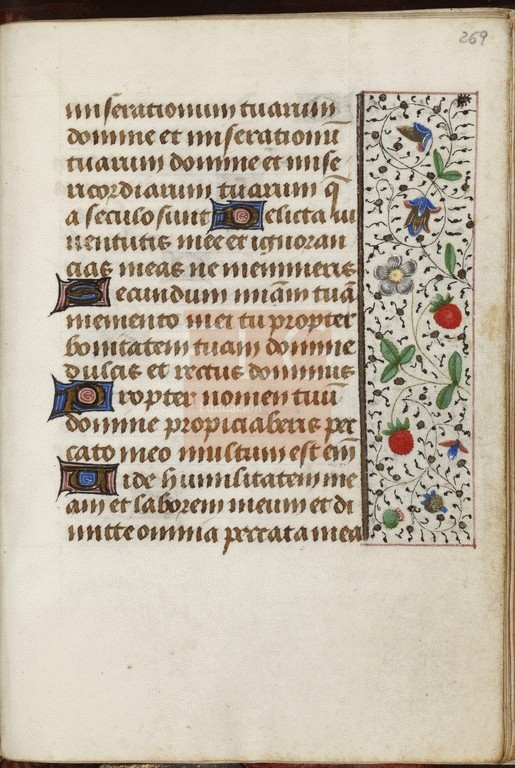 269
miserationum tuarum
domine et miserationū
tuarum domine et mise
ricordiarum tuarum q̄
a seculo sunt Delicta iu
uentutis mee et ignoran
cias meas ne memineris
Secundum miā̄m tuā
memento mei tu propter
bonitatem tuam domine
Dulcis et rectus dominus
Propter nomen tuū
domine propiciaberis pec
cato meo multum est em̄
Vide humilitatem me
am et laborem meum et di
mitte omnia peccata mea
Fundación